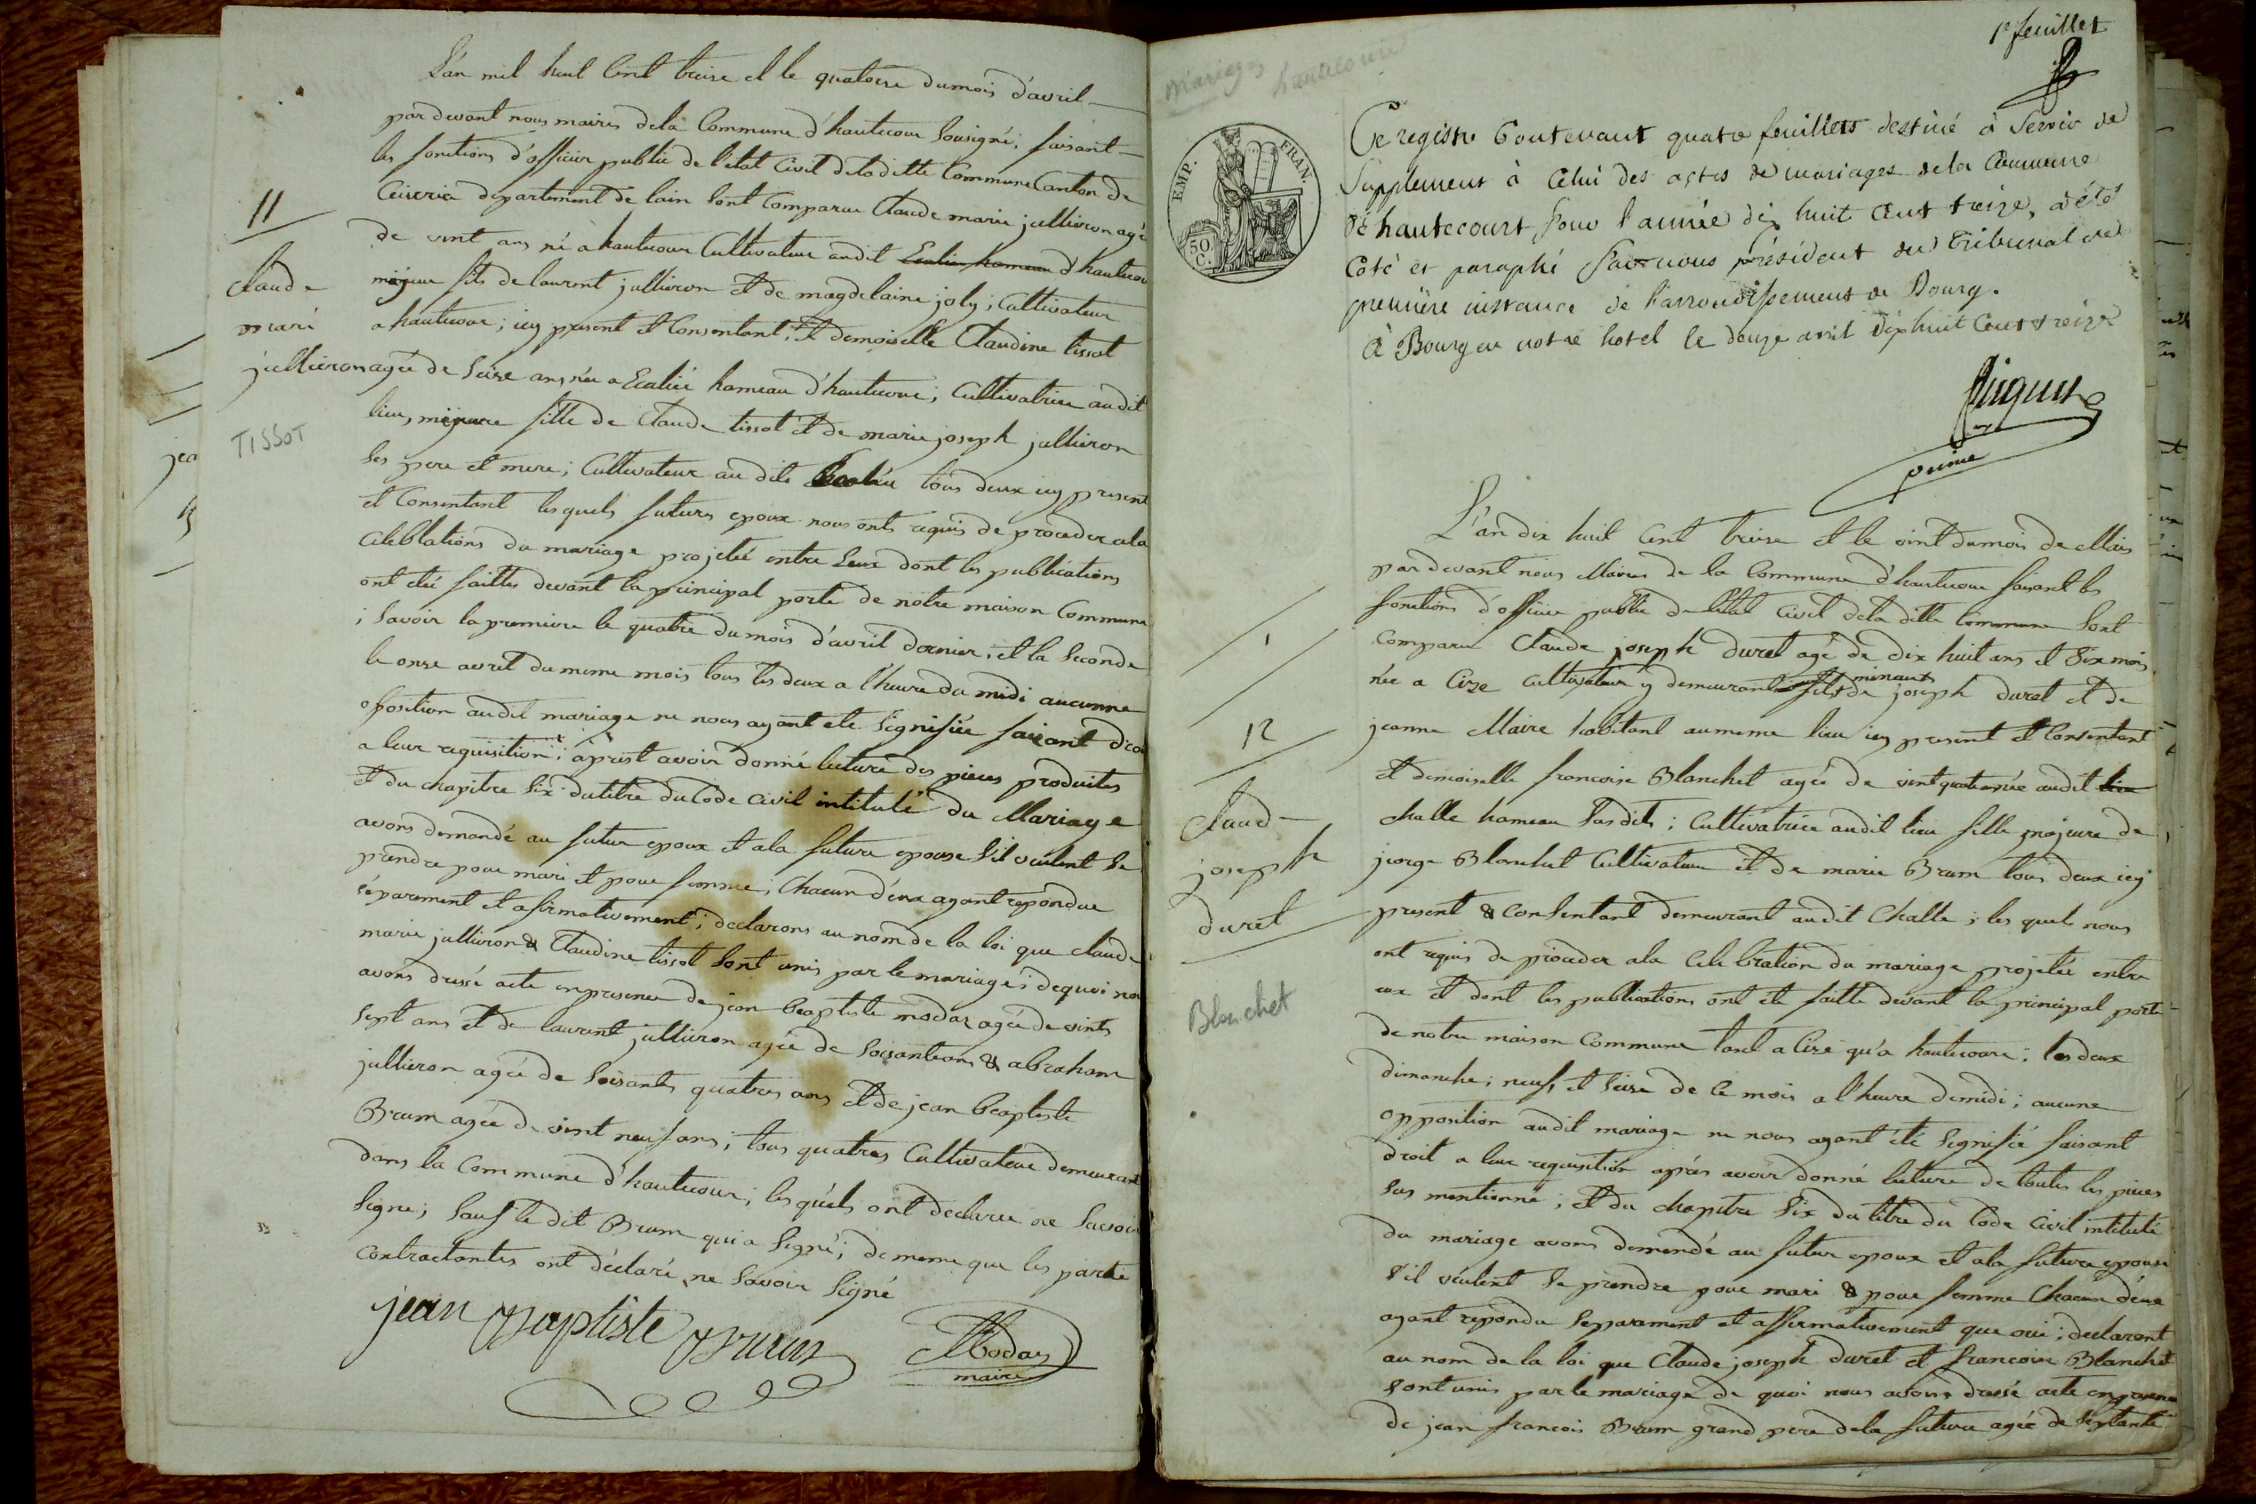 L'an mil huit Cent treise et le quatorse du mois d'avril
par devant nous maires dela Commune d'hautecour Sousigné, faisant
les fonctions d'officier public de l'etat Civil de la ditte Commune Canton de
Ceiseria departement de lain Sont Comparue Claude marie jullieron agé
de vint ans né a hautecour Cultivateur audit Ecalier hameau d'hautecour
mijeur fils de laurent jullieron et de magdelaine joly; Cultivateur
a hautecour; icy present et Consentant; Et demoiselle Claudine tissot
agée de Seise ans née a Ecaliée hameau d'hautecour; Cultivatrice au dit
lieu, mijeure fille de Claude tissot et de marie joseph jullieron
Ses pere et mere; Cultivateur au dits Ecaliée tous deux icy present
et Consentant les quels futures epoux nous onts requis de proceder ala
Celeblations du mariage projetté entre Leux dont les publications
ont eté faittes devant la principal porte de notre maison Commune
; Savoir la premiere le quatre du mois d'avril dernier; et la Seconde
le onse avril du meme mois tous les deux a l'heure du midi aucunne
oposition au dit mariage ne nous ayant eté Signifiée faisant droi
a leur requisition; aprist avoir donné lecture des pieces produites
et du chapitre Six du titre du Code Civil intitulé du Mariage
avons demandé au futur epoux et ala future epouse S'il veulent Se
prendre pour mari et pour femme; Chacun d'eux ayant repondue
séparement et afirmativement; declarons au nom de la loi que claude
marie jullieron & Claudine tissot Sont unis par le mariage; dequoi nou
avons dressé acte en presence de jean baptiste modas agée de vints
Sept ans et de laurent jullieron agée de Soisante ans & abraham
jullieron agée de Soisante quatres ans et de jean baptiste
Brum agée de vint neuf ans; tous quatres Cultivateur demeurant
dans la Commune d'hautecour; les quels ont declaree ne Savoir
Signe; Sauf le dit Brum qui a Signé; de meme que les partie
contractantes ont déclaré ne Savoir Signé
jean Baptiste Brum
Modas
maire
11
Claude
marie
jullieron
TISSOT
jea
1er feuillet
Mariages hautecour
EMP. FRAN.
50 C.
Ce registre Contenant quatre feuillets destiné à Servir de
Supplement à Celui des actes de mariages de la Commune
de hautecourt, pour l'année dix huit Cent treize, a été
Coté et paraphé par nous président du Tribunal de
première instance de l'arrondissement de Bourg.
à Bourg en notre hotel le douze avril dix huit Cent treize
L'an dix huit Cent treise et le vint du mois de Mais
par devant nous Maires de la Commune d'hautecour fesant les
fonctions d'officier public de l'etat Civil dela ditte commune Sont
comparu Claude joseph Duret agé de dix huit ans et Six mois
née a Cize Cultivateur y demeurant fils minaut de joseph Duret et de
jeanne Maire habitant au meme lieu icy present et Consentant
et demoiselle francoise Blanchet agée de vint quatre née au dit lieu
challe hameau Susdits; Cultivatrice audit lieu fille majeure de
jeorge Blanchet Cultivateur et de marie Brum tous deux icy
present & consentant demeurant au dit Challe; les quels nous
ont requis de proceder ala Celebration du mariage projetée entre
eux et dont les publications ont eté faitte devant la principal porte
de notre maison Commune tant a Cize qu'a hautecour; les deux
dimanche; neuf et Seise de Ce mois a l'heure de midi; aucune
opposition au dit mariage ne nous ayant été Signifié faisant
droit a leur requisition aprés avoir donné lecture de toutes les pieces
Sus mentionné; et du chapitre Six du titre du Code Civil intitulé
du mariage avons demendé au futur epoux et ala future epouse
S'il véulent Se prendre pour mari & pour femme Chacun d'eux
ayant repondu Separement et affirmativement que oui; declaront
au nom de la loi que Claude joseph Duret et francoise Blanchet
Sont unis par le mariage de quoi nous avons dressé acte en presence
de jean francois Brum grand pere dela future agée de Séptante
1
12
Claude
joseph
duret
Blanchet